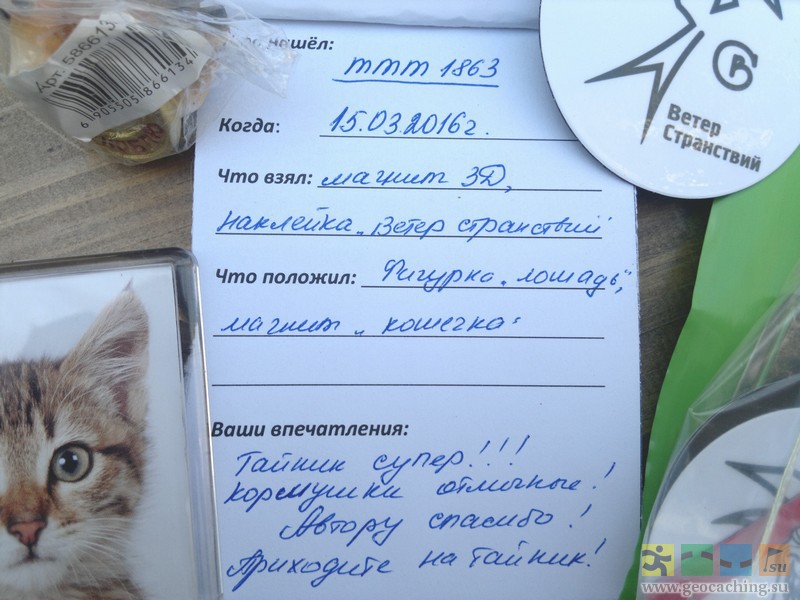 нашёл:
ттт 1863
Когда: 15.03.2016г.
Что взял: магнит 3Д,
наклейка „Ветер странствий"
Что положил: Фигурка „лошадь",
магнит „кошечка"
Ваши впечатления:
Тайник супер!!!
кормушки отличные!
Автору спасибо!
Приходите на тайник!
Арт. 586613
6903505866134
Ветер
Странствий
su
www.geocaching.su